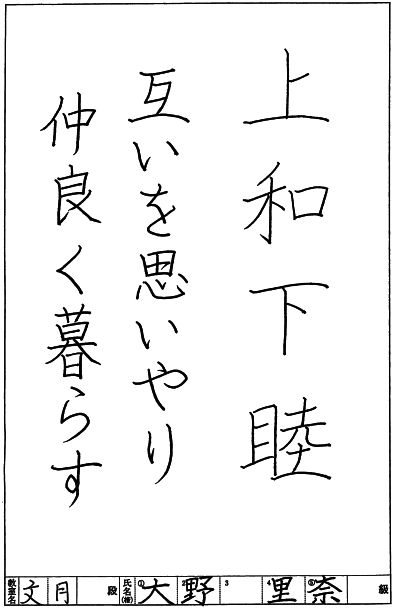 上和下睦
互いを思いやり
仲良く暮らす
教室名 文月 段 氏名(様) ①大 2野 3 4里 ⑤奈 級